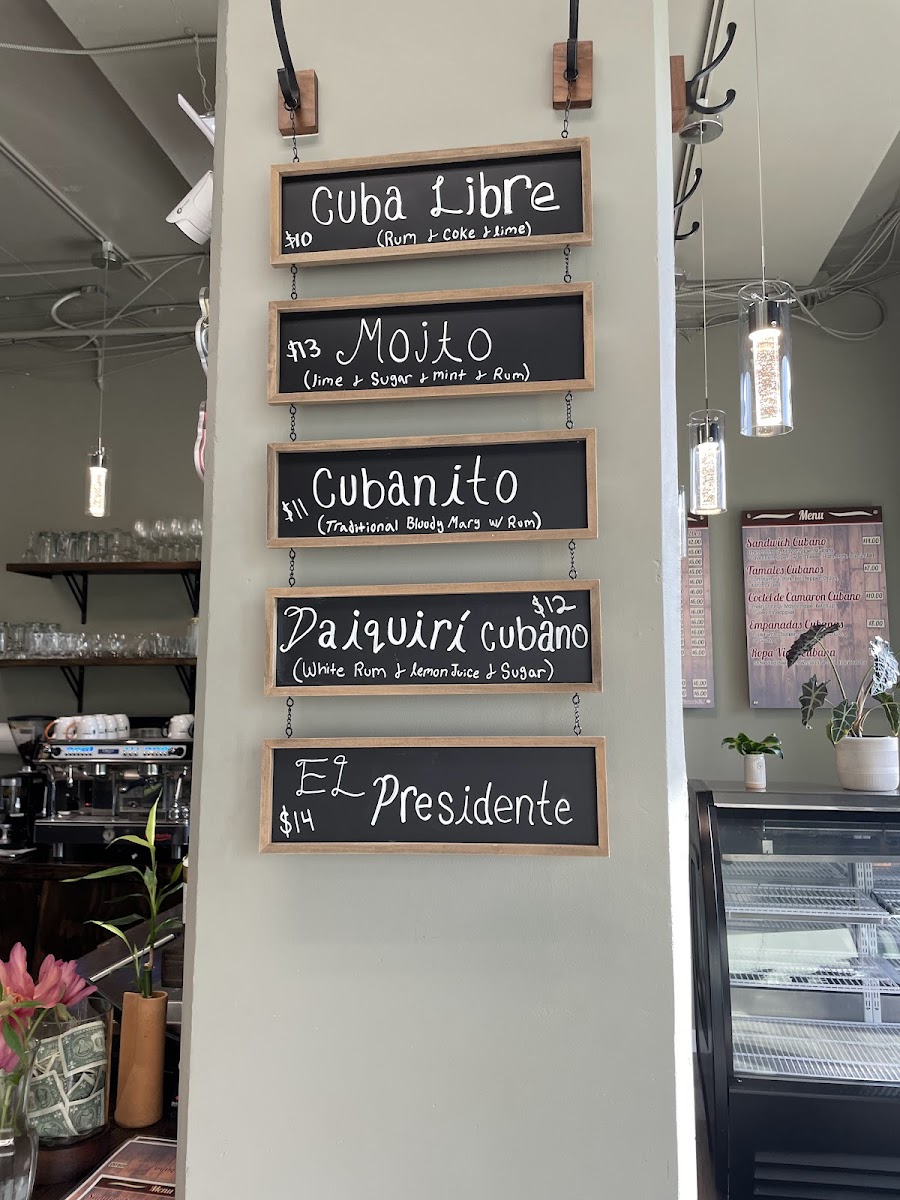 Cuba Libre
$10 (Rum & Coke & lime)
$13 Mojto
(lime & Sugar & mint & Rum)
Cubanito
$11 (Traditional Bloody Mary w/ Rum)
$12
Daiquirí Cubano
(White Rum & lemon Juice & Sugar)
EL Presidente
$14
Menu
Sandwich Cubano
Tamales Cubanos $7.00
Coctel de Camaron Cubano $10.00
Empanadas Cubanas
Ropa Vieja Cubana
Menu